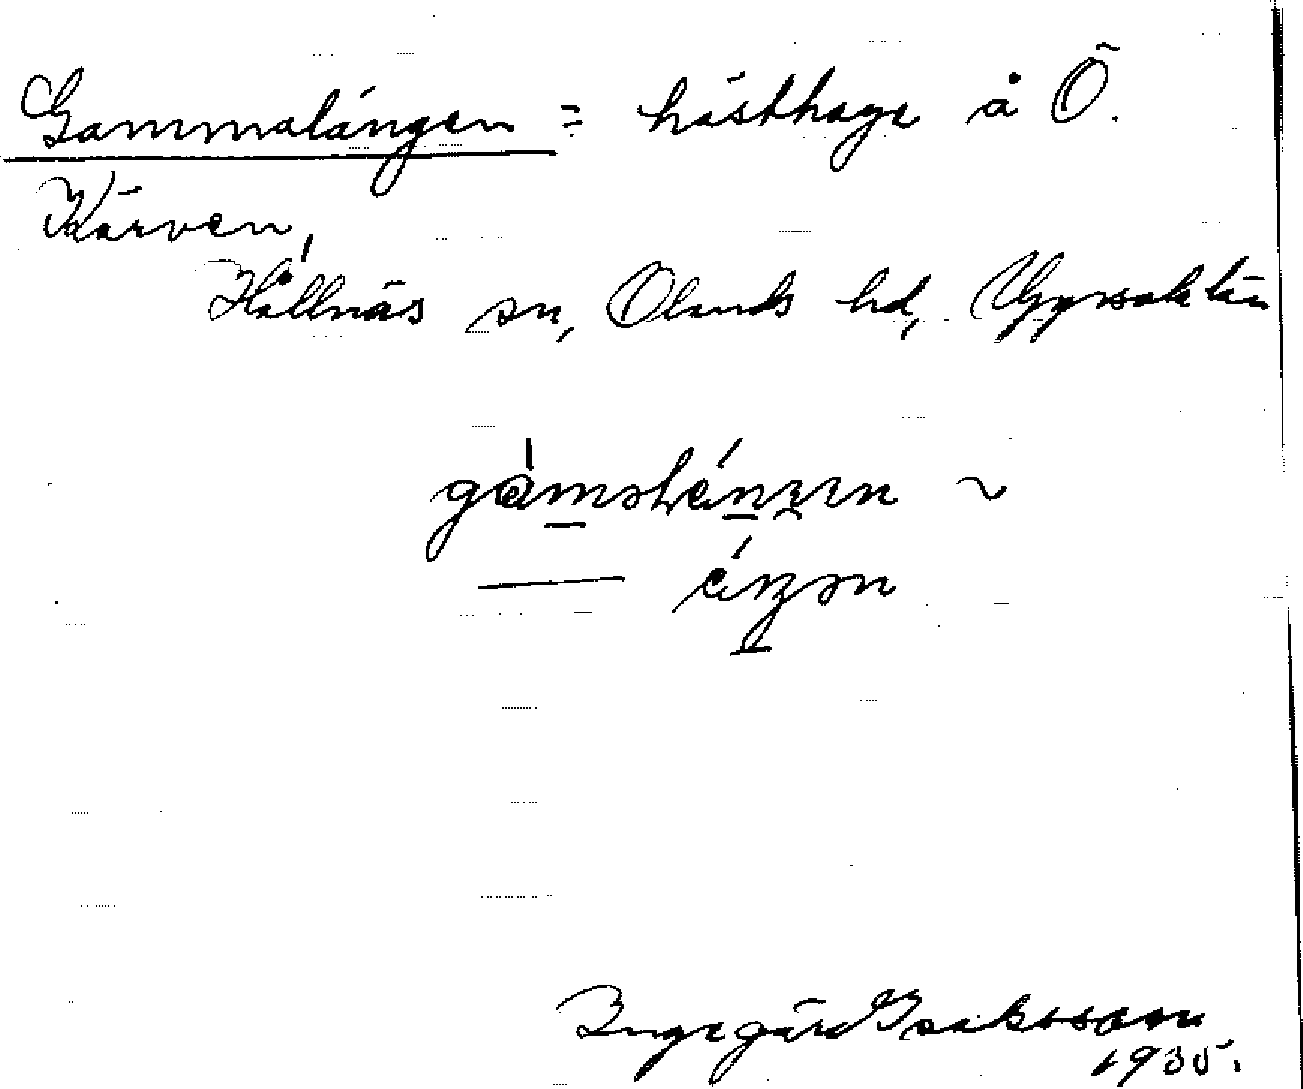 Gammalängen = hästhage å Ö.
Kärven,
Hållnäs sn, Olands hd, Uppsala län
Ingegärd Isaksson
1935.